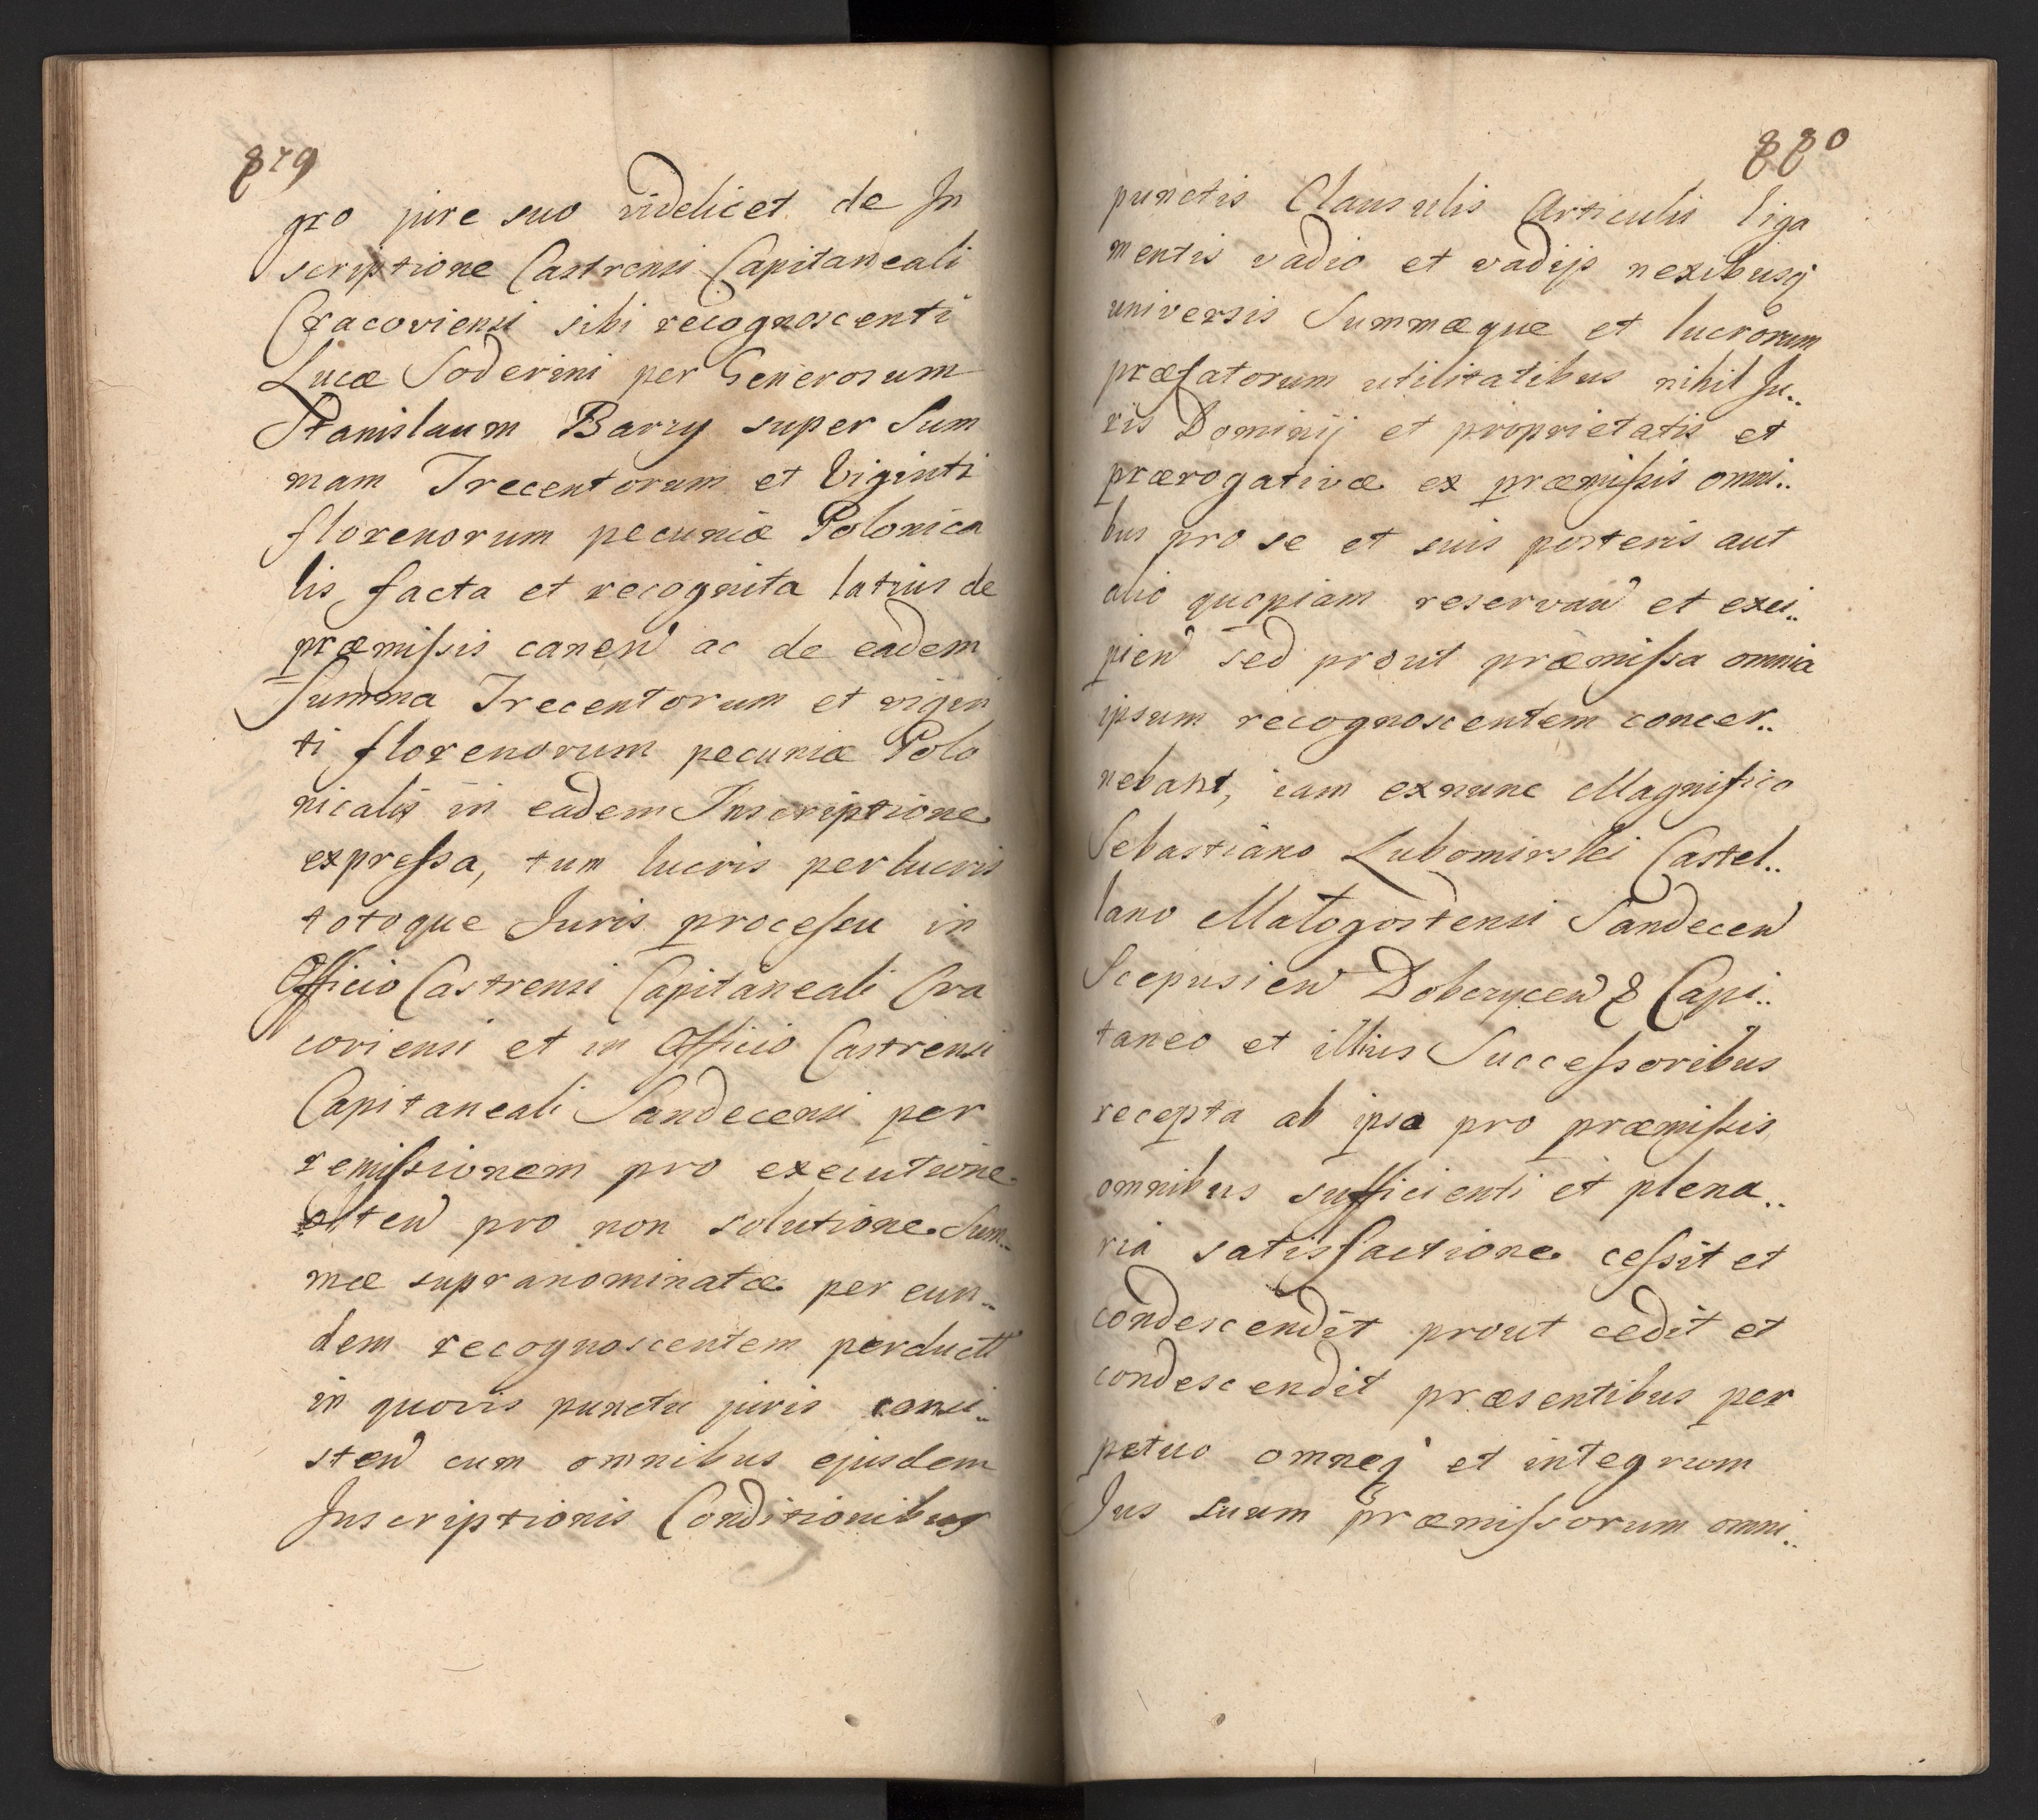 879
pro jure suo videlicet de In
scriptione Castrensi Capitaneali
Cracoviensi sibi recognoscenti
Lucæ Soderini per Generosum
Stanislaum Barzy super Sum
mam Trecentorum et Viginti
florenorum pecuniæ Polonica
lis facta et recognita latius de
præmissis canen ac de eadem
Summa Trecentorum et vigin
ti florenorum pecuniæ Polo
nicalis in eadem Inscriptione
expressa, tum lucris perlucris
totoque Juris processu in
Officio Castrensi Capitaneali Cra
coviensi et in Officio Castrensi
Capitaneali Sandecensi per
remissionem pro executione
pro non solutione Sum..
mæ supranominatæ per eun..
dem recognoscentem perductt
in quovis puncto juris consi..
sten cum omnibus ejusdem
Inscriptionis Conditionibus
880
punctis Clausulis Articulis liga
mentis vadio et vadijs nexibusq
universis Summæque et lucrorum
præfatorum utilitatibus nihil Ju..
ris Dominij et proprietatis et
prærogativæ ex præmissis omni..
bus pro se et suis posteris aut
alio quopiam reservan et exci..
pien sed prout præmissa omnia
ipsum recognoscentem concer..
nebant, iam exnunc Magnifico
Sebastiano Lubomirski Castel..
lano Małogostensi Sandecen
Scepusien Dobczycen & Capi..
taneo et illius Successoribus
recepta ab ipso pro præmissis
omnibus sufficienti et plena..
ria satisfactione cessit et
condescendit prout cedit et
condescendit præsentibus per
petuo omneq et integrum
Jus suum præmissorum omni..